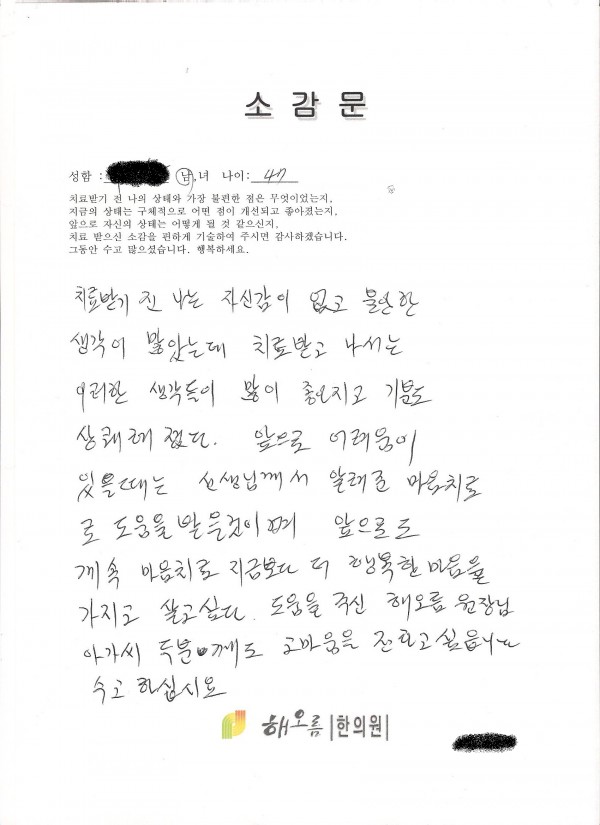 소 감 문
성함 : 남,녀 나이: 47
치료받기 전 나의 상태와 가장 불편한 점은 무엇이었는지,
지금의 상태는 구체적으로 어떤 점이 개선되고 좋아졌는지,
앞으로 자신의 상태는 어떻게 될 것 같으신지,
치료 받으신 소감을 편하게 기술하여 주시면 감사하겠습니다.
그동안 수고 많으셨습니다. 행복하세요.
치료받기 전 나는 자신감이 없고 불안한
생각이 많았는데 치료받고 나서는
이러한 생각들이 많이 좋아지고 기분도
상쾌해 졌다. 앞으로 어려움이
있을때는 선생님께서 알려준 마음치료
로 도움을 받을것이며 앞으로도
계속 마음치료 지금보다 더 행복한 마음을
가지고 살고싶다. 도움을 주신 해오름 원장님
아가씨 두분께도 고마움을 전하고싶읍니다
수고 하십시요
해오름 한의원